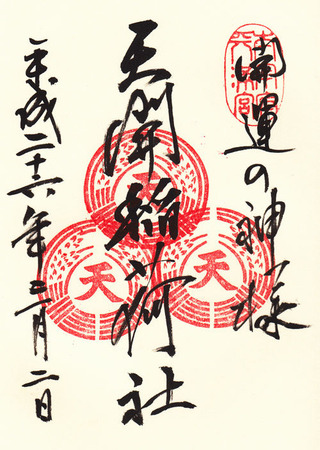 開運の神様
天開稲荷社
平成二十六年二月二日
天
天
天